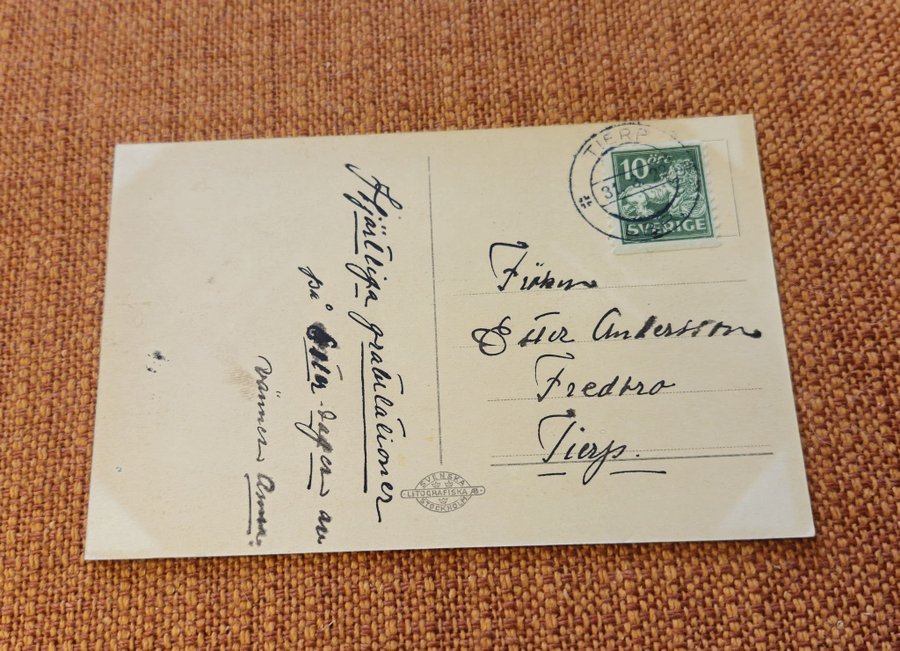 Hjärtliga gratulationer
på Ester-dagen av
vännen Anna.
TIERP
31
10 öre
SVERIGE
Fröken
Ester Andersson
Fredbro
Tierp.
SVENSKA
LITOGRAFISKA AB
STOCKHOLM